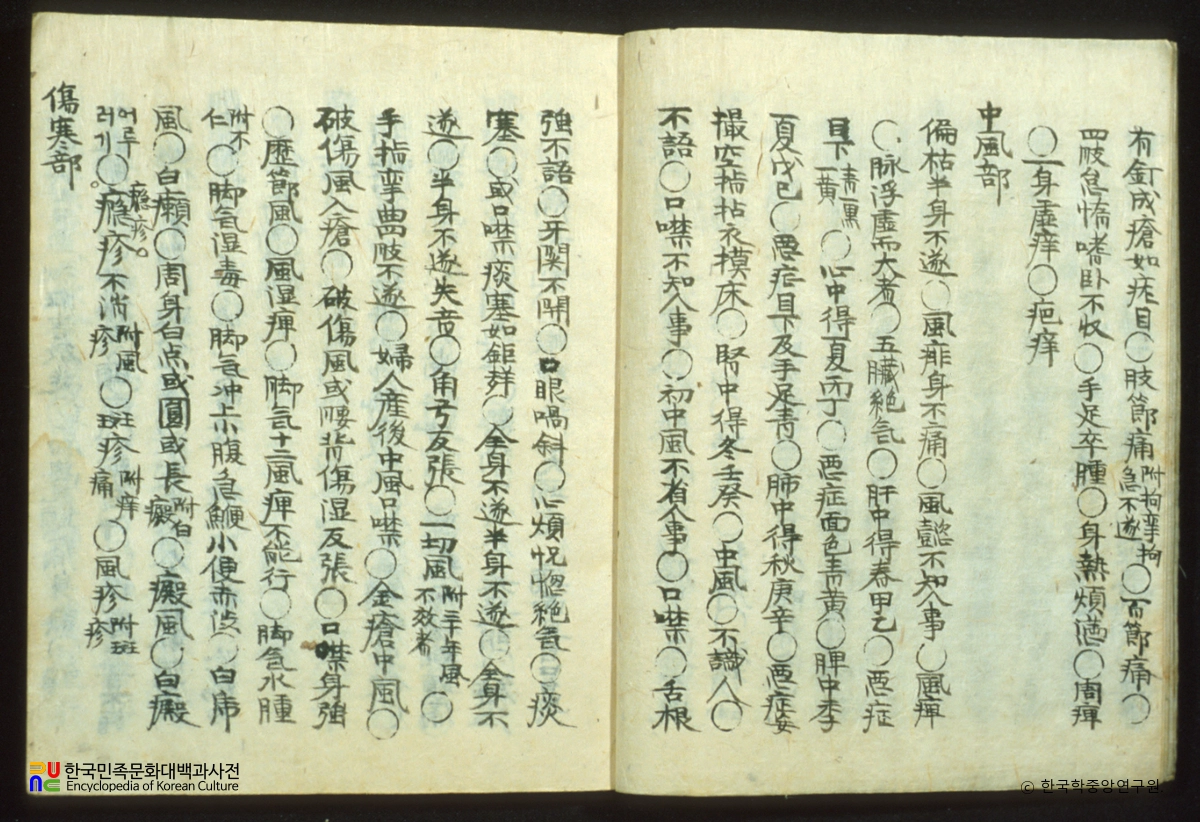 有釘成瘡如疣目○肢節痛附拘攣拘急不遂○百節痛○
四肢怠惰嗜卧不收○手足卒腫○身熱煩滿○周痺
○一身虛痒○疤痒
中風部
偏枯半身不遂○風痱身不痛○風懿不知人事○風痺
○脉浮虛而大者○五臟絶氣○肝中得春甲乙○恶症
目下青黑一黃○心中得夏丙丁○恶症面色青黃○脾中季
夏戊己○恶症目下及手足青○肺中得秋庚辛○恶症妄
撮空指拈衣摸床○腎中得冬壬癸○中風○不識人○
不語○口噤不知人事○初中風不省人事○口噤○舌根
強不語○牙関不開○口眼喎斜○心煩怳惚絶氣○痰
塞○或口噤痰塞如鉅○全身不遂半身不遂○全身不
遂○半身不遂失音○角弓反張○一切風附三十年風不效者○
手指攣曲四肢不遂○婦人産後中風口噤○金瘡中風○
破傷風入瘡○破傷風或腰背傷湿反張○口噤身強
○歷節風○風湿痺○脚氣十二風痺不能行○脚氣水腫
附不仁○脚氣湿毒○脚氣冲上小腹急鞭小便赤澁○白
風○白癩○周身白点或圓或長附白癜○癜風○白癜
어루러기○癮疹不消附風疹○斑疹附痒痛○風疹附斑疹
癮疹
傷寒部
한국민족문화대백과사전
Encyclopedia of Korean Culture
© 한국학중앙연구원